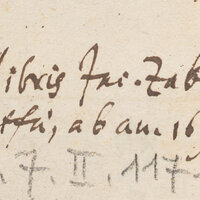 libris Jac. Zab
ffu, ab an. 16
. 7. II. 117